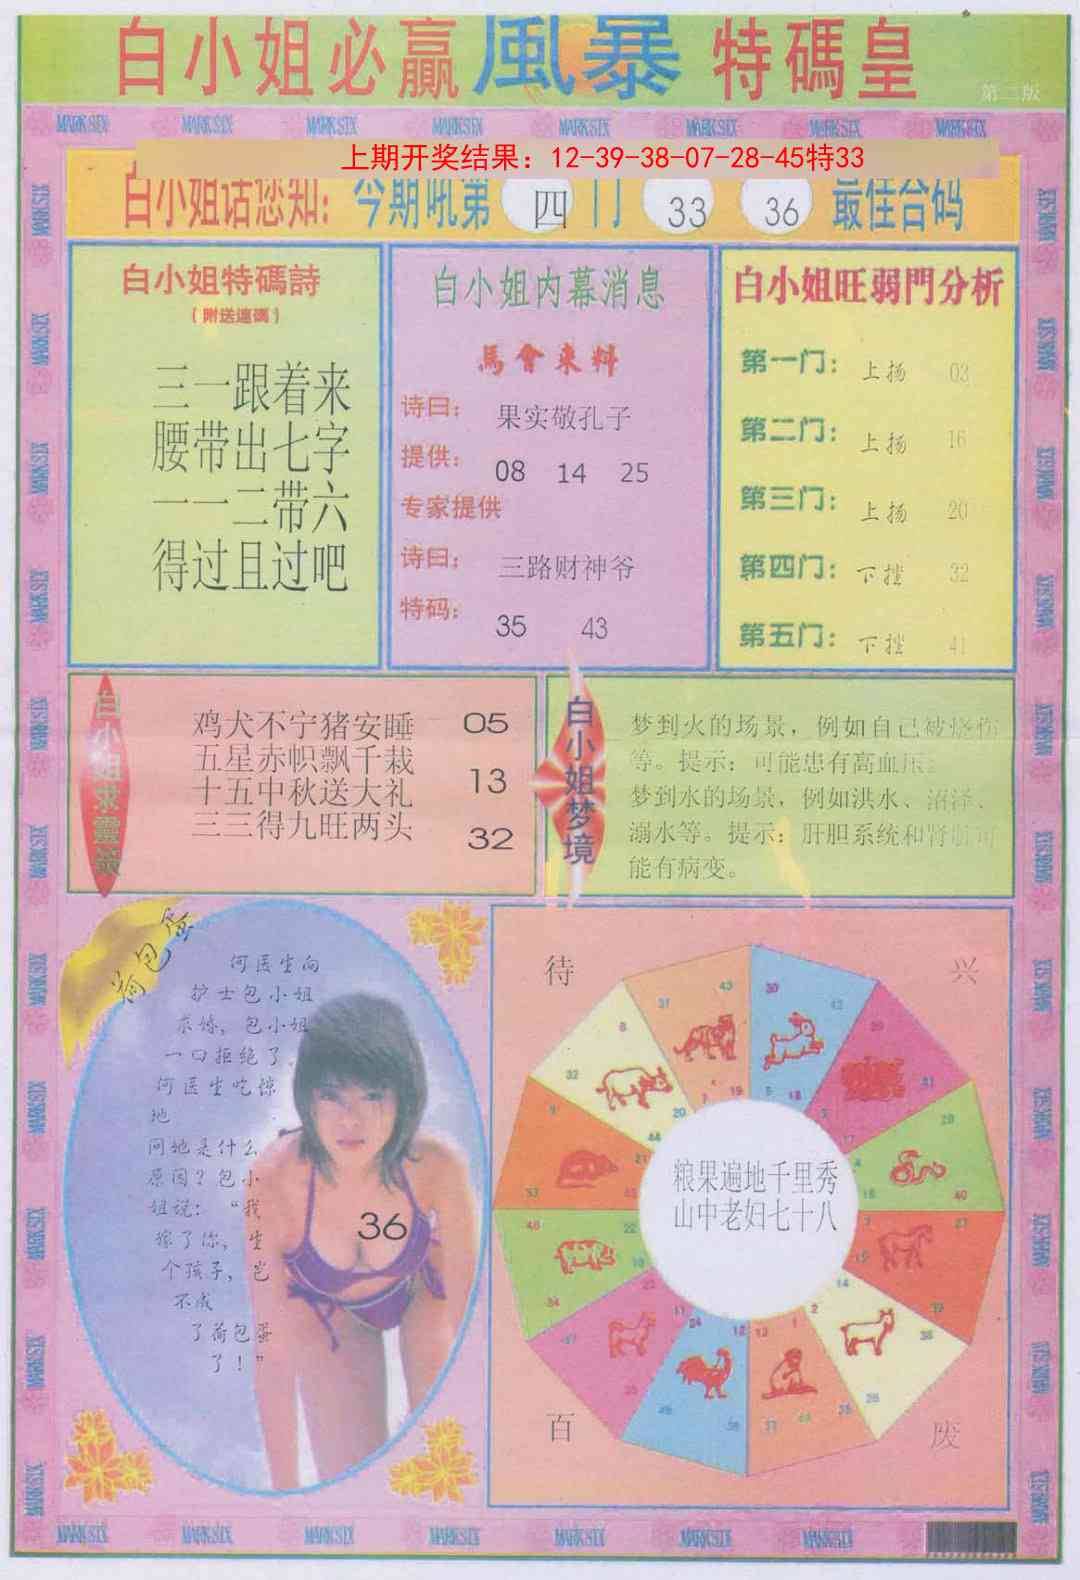 白小姐必赢風暴特碼皇
第二版
MARK SIX MARK SIX MARK SIX MARK SIX MARK SIX MARK SIX MARK SIX MARK SIX
上期开奖结果：12-39-38-07-28-45特33
白小姐话您知：今期吼第四门 33 36 最佳合码
白小姐特碼詩
(附送連碼)
三一跟着来
腰带出七字
一一二带六
得过且过吧
白小姐内幕消息
馬會来料
诗曰：果实敬孔子
提供：08 14 25
专家提供
诗曰：三路财神爷
特码：35 43
白小姐旺弱門分析
第一门：上扬 03
第二门：上扬 16
第三门：上扬 20
第四门：下挫 32
第五门：下挫 41
白小姐求靈簽
鸡犬不宁猪安睡 05
五星赤帜飘千栽
十五中秋送大礼 13
三三得九旺两头 32
白小姐梦境
梦到火的场景，例如自己被烧伤
等。提示：可能患有高血压
梦到水的场景，例如洪水、沼泽、
溺水等。提示：肝胆系统和肾脏可
能有病变。
荷包蛋
何医生向
护士包小姐
求婚，包小姐
一口拒绝了，
何医生吃惊
地
问她是什么
原因？包小
姐说：“我
嫁了你，生
个孩子，岂
不成
了荷包蛋
了！”
36
待 兴
粮果遍地千里秀
山中老妇七十八
百 废
MARK SIX MARK SIX MARK SIX MARK SIX MARK SIX MARK SIX MARK SIX